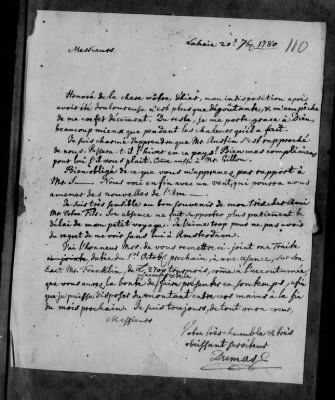 110
Lahaie 20e. 7br. 1780
Messieurs
Honoré de la chere vôtre d'hier, mon indisposition après
avoir été douloureuse n'est plus que dégoûtante, & m'empêche
de me coeffer décemment. Du reste, je me porte, grace à Dieu,
beaucoup mieux que pendant les chaleurs qu'il a fait.
Je suis charmé d'apprendre que Mr. Austin s'est rapproché
de nous. Passera-t-il l'hiver en ce pays? Bien mes complimens
pour lui s'il vous plait. Comme aussi à Mr. Gillon.
Bien obligé de ce que vous m'apprenez par rapport à
Mr. S—— Nous voici enfin avec un vent, qui pourra nous
amener des nouvelles de l'
Je suis très sensible au bon souvenir de mon très cher Ami
Mr. votre Fils. Son absence me fait supporter plus patiemment le
délai de mon petit voyage. Je l'aime trop pour ne pas avoir
du regret de me voir sans lui à Amsterdam.
J'ai l'honneur Mrs. de vous remettre ci-joint ma Traite
du 1er. Octobr. prochain, à une usance, sur Son
Exce. Mr. Franklin, de 2700 tournois,
que vous aurez la bonté de faire présenter en son temps, afin
que je puisse disposer du montant entre vos mains à la fin
du mois prochain. Je suis toujours, de tout mon coeur,
Messieurs
Votre très-humble & très
obéissant serviteur
Dumas